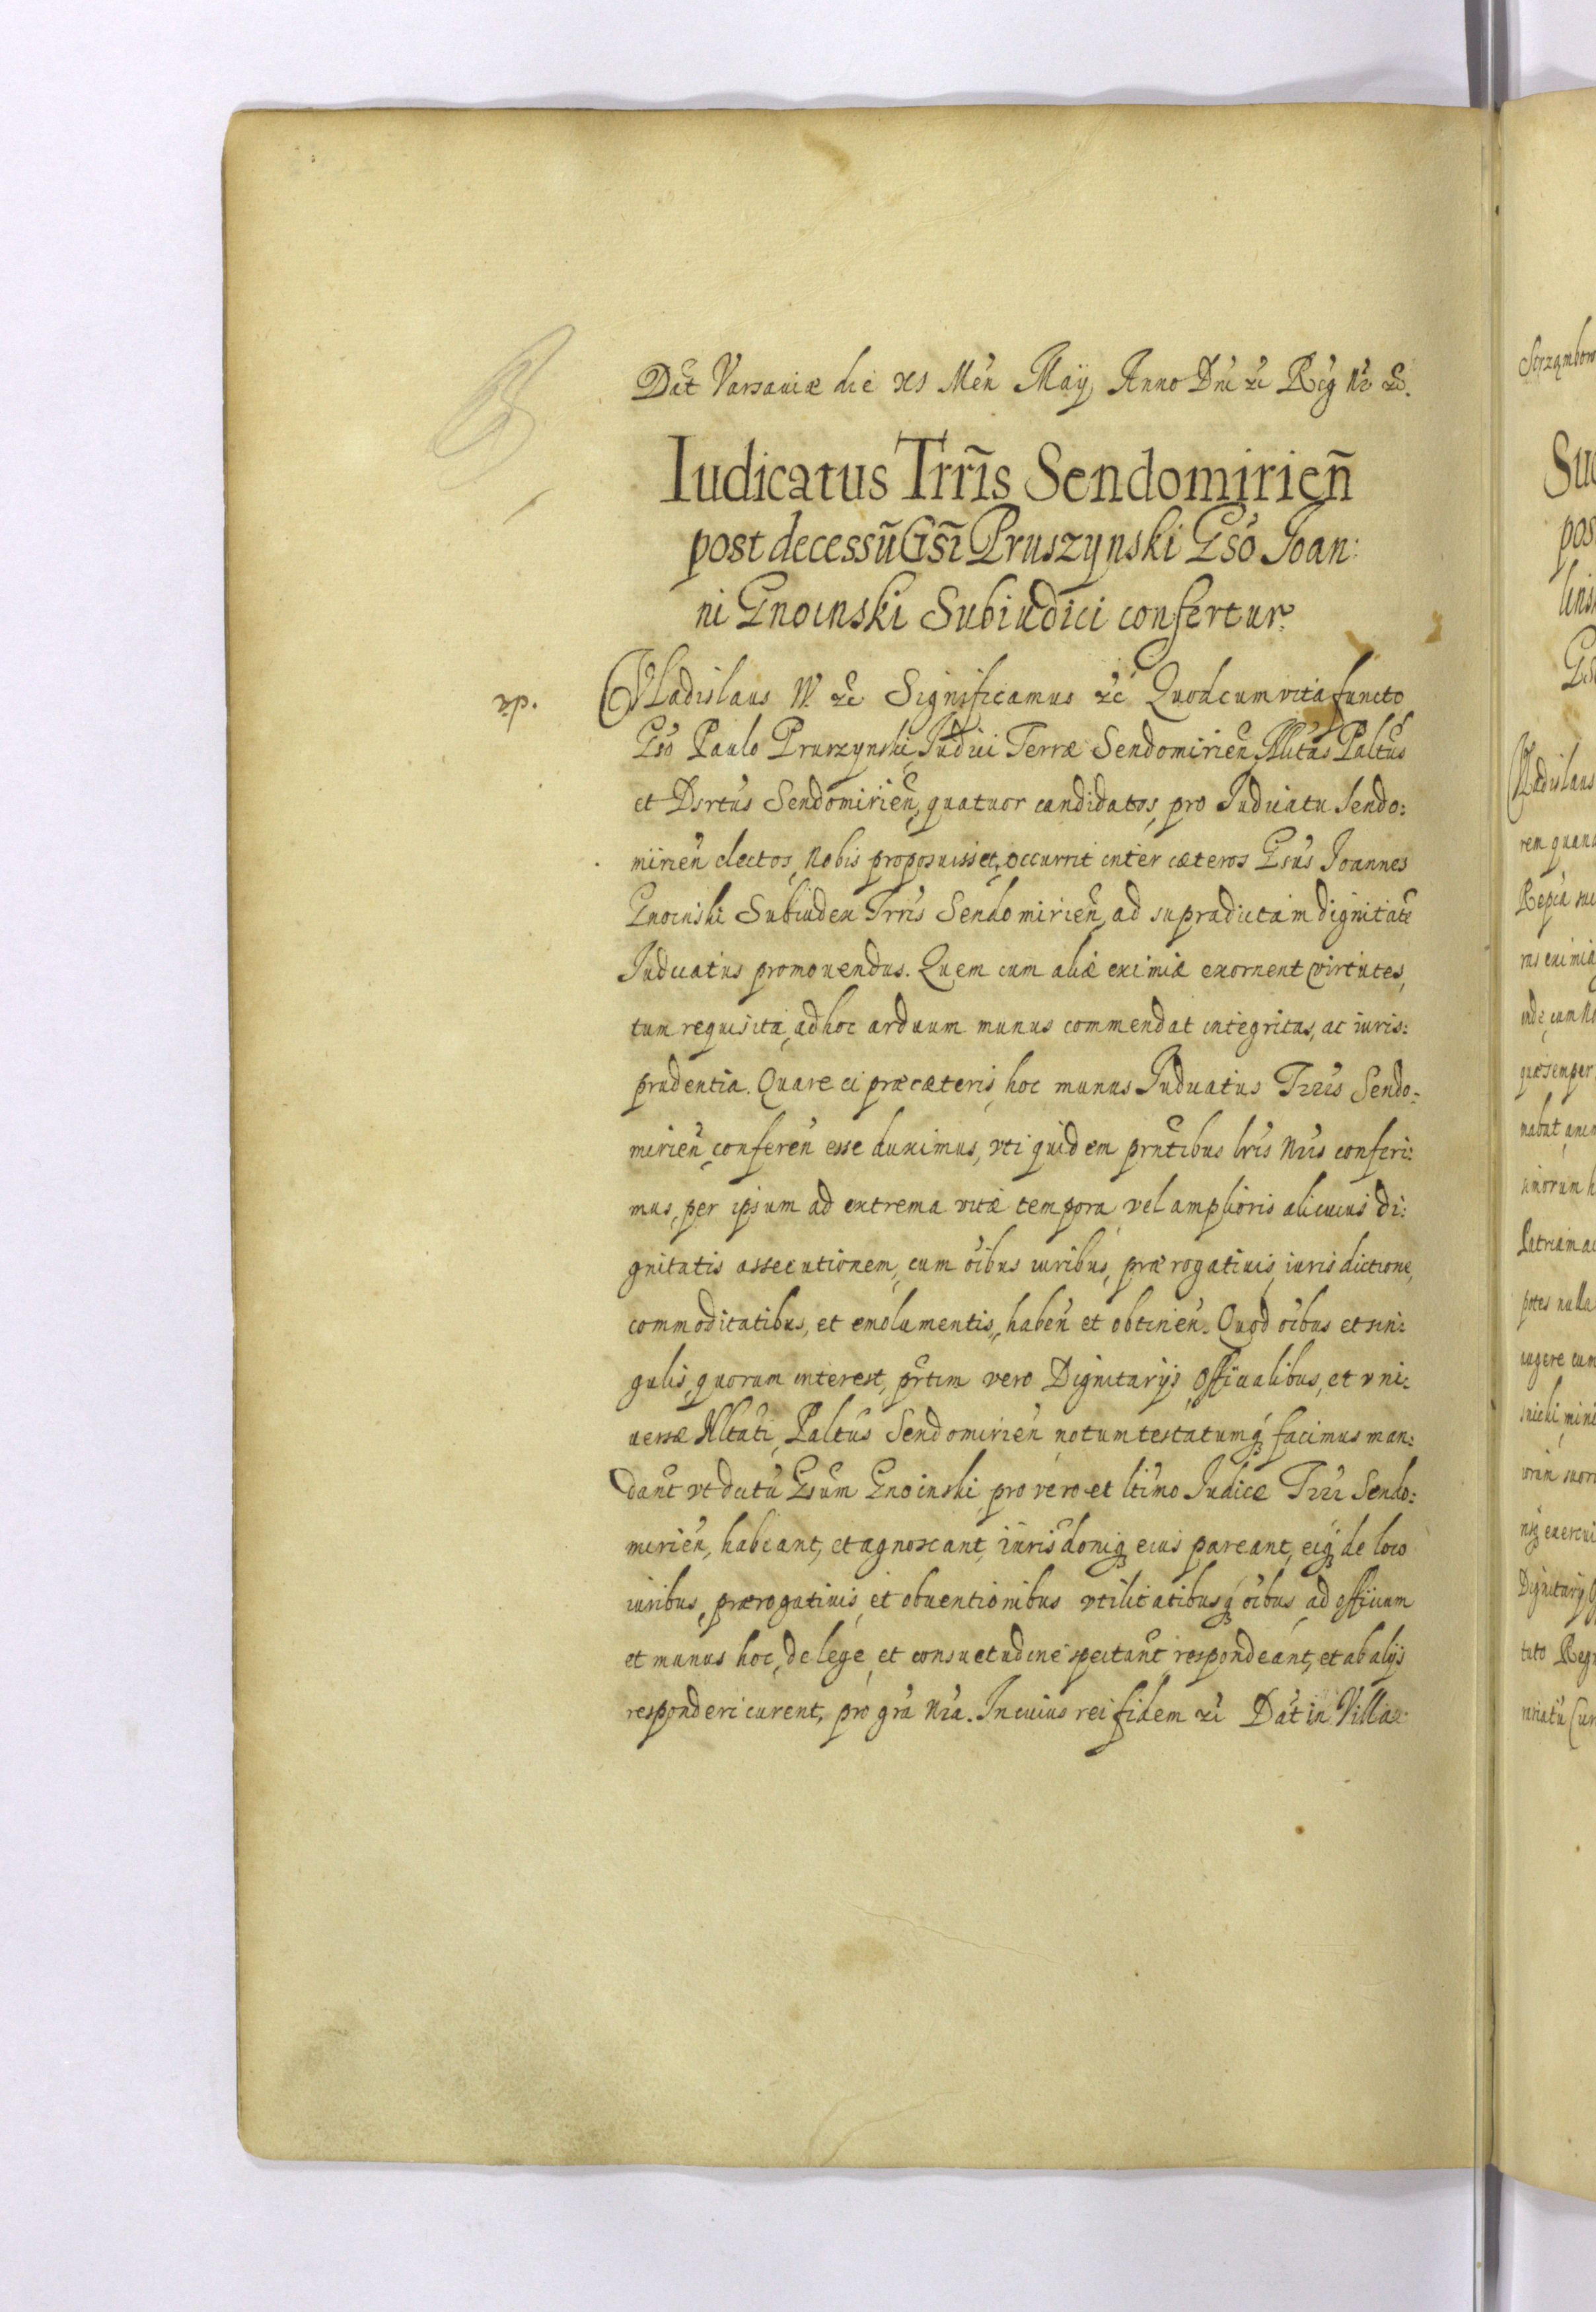 Dat Varsaviæ die xi Men̄ Maÿ Anno Dni &c Reg Nr̄ &c.
Iudicatus Trr̄is Sendomirien̄
post decessū Gsī Pruszynski Gsō Joan:
ni Gnoinski Subiudici confertur.
Vladislaus IV. &c Significamus &c Quod cum vita functo
Gsō Paulo Pruszynski, Judici Terræ Sendomirien̄ Nltās Paltūs
et Dsrtūs Sendomirien̄, quatuor candidatos, pro Judicatu Sendo:
mirien̄ electos, Nobis proposuisset, occurrit inter cæteros Gsūs Joannes
Gnoinski Subiudex Trrīs Sendomirien̄, ad supradictam dignitatē
Judicatus promouendus. Quem cum aliæ eximiæ exornent virtutes,
tum requisita, ad hoc arduum munus commendat integritas, ac iuris:
prudentia. Quare ei præ cæteris, hoc munus Judicatus Trrīs Sendo:
mirien̄ conferen̄ esse duximus, vti quidem prn̄tibus lrīs Nrīs conferi:
mus, per ipsum ad extrema vitæ tempora, vel amplioris alicuius di:
gnitatis assecutionem, cum oībus iuribus, prærogatiuis, iurisdictione,
commoditatibus, et emolumentis, haben̄ et obtinen̄. Quod oībus et sin:
gulis, quorum interest, prtīm vero Dignitarijs, Officialibus, et vni:
uersæ Nltāti, Paltūs Sendomirien̄ notum testatumq; facimus man:
dan̄t vt dictū Gsūm Gnoinski, pro vero et ltīmo Judice Trrī Sendo:
mirien̄, habeant, et agnoscant, iurīsdoniq; eius pareant, eiq; de loco
iuribus, prærogatiuis, et obuentionibus vtilitatibusq; oībus, ad officium
et munus hoc, de lege, et consuetudine spectan̄t, respondeant, et ab alijs
responderi curent, pro grā Nrā. In cuius rei fidem &c Dat in Villa